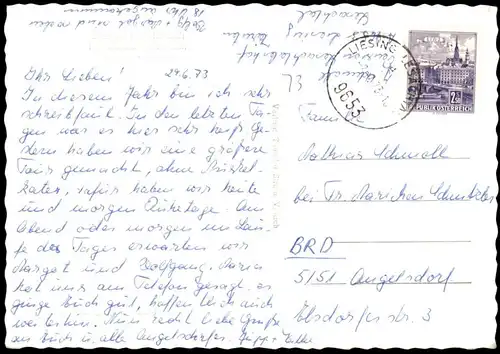 Ihr Lieben! 24.6.73
In diesem Jahr bin ich sehr
schreibfaul. In den letzten Ta-
gen war es hier sehr heiß. Ge-
stern haben wir eine größere
Tour gemacht, ohne Muskel-
kater, dafür haben wir heute
und morgen Ruhetage. Am
Abend oder morgen im Lau-
fe des Tages erwarten wir
Margret und Wolfgang. Maria
hat uns am Telefon gesagt, es
ginge Euch gut, hoffen wir auch
weiterhin. Nun recht liebe Grüße
an Euch u. alle Angelsdorfer.
LIESING LESACHTAL
9653
REPUBLIK ÖSTERREICH
Fam.
Mathias Schmoll
bei Fr.
BRD
5151 Angelsdorf
Elsdorfer str. 3